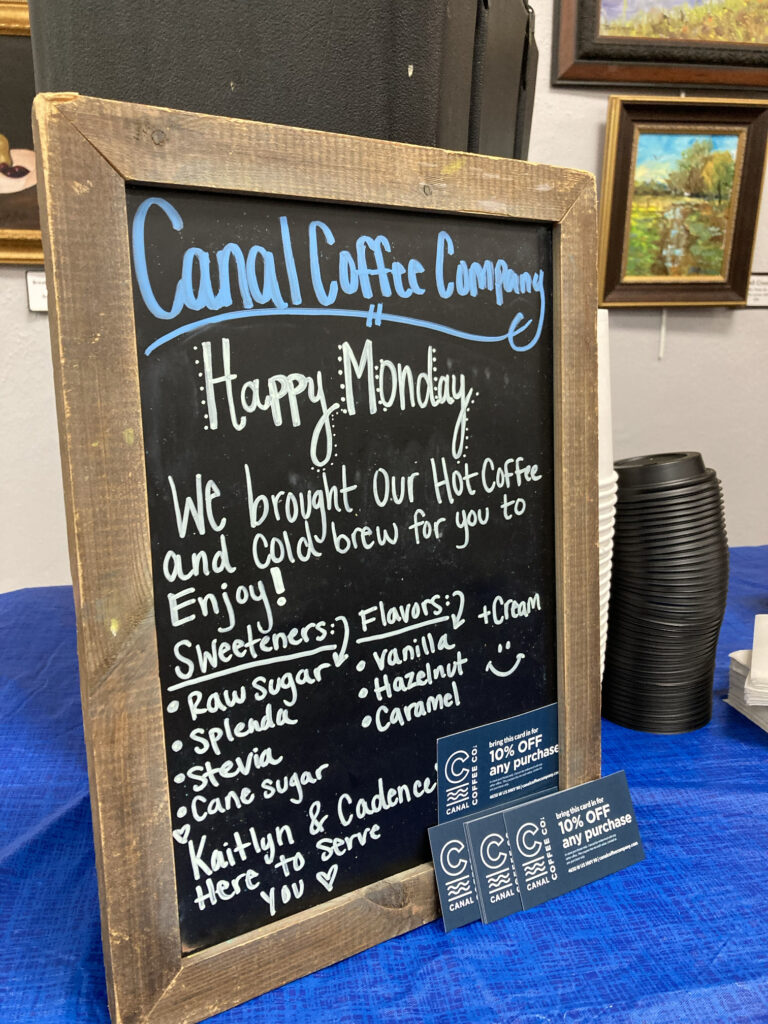 Canal Coffee Company
Happy Monday
We brought Our Hot Coffee
and cold brew for you to
Enjoy!
Sweeteners:
• Raw Sugar
• Splenda
• Stevia
• Cane Sugar
Flavors:
• Vanilla
• Hazelnut
• Caramel
+ Cream
Kaitlyn & Cadence
Here to serve
you
CANAL
COFFEE CO.
bring this card in for
10% OFF
any purchase
CANAL
CANAL
CANAL
COFFEE CO.
bring this card in for
10% OFF
any purchase